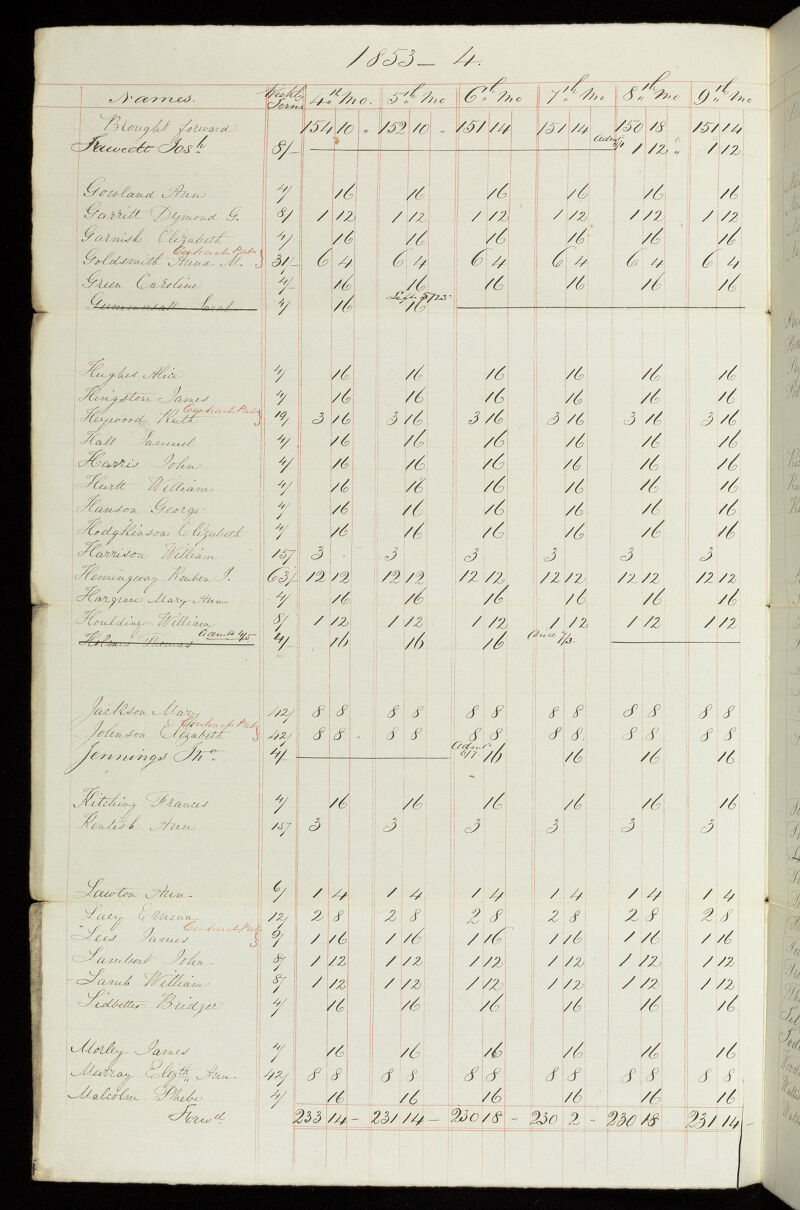 1853 – 4.
Names. Weekly Terms 4th Mo. 5th Mo 6th Mo 7th Mo 8th Mo 9th Mo
Brought forward 154 10 " 152 10 " 151 14 151 14 150 18 151 14
Fawcett Josh. 8/- Admd 1 12 " 1 12
Gowland Ann 4/ 16 16 16 16 16 16
Garritt Dymond G. 8/ 1 12 1 12 1 12 1 12 1 12 1 12
Garnish Elizabeth 4/ 16 16 16 16 16 16
Contract Pat.
Goldsmith Anna M. 31/- 6 4 6 4 6 4 6 4 6 4 6 4
Green Caroline 4/- 16 16 16 16 16 16
Left 5/23
Gummersall Sarah 4/ 16 16
Hughes Alice 4/ 16 16 16 16 16 16
Kingston James 4/ 16 16 16 16 16 16
Contract Pat.
Heywood Ruth 19/ 3 16 3 16 3 16 3 16 3 16 3 16
Hall Samuel 4/ 16 16 16 16 16 16
Harris John 4/ 16 16 16 16 16 16
Hurtt William 4/ 16 16 16 16 16 16
Hanson George 4/ 16 16 16 16 16 16
Hodgkinson Elizabeth 4/ 16 16 16 16 16 16
Harrison William 15/ 3 - 3 3 3 3 3
Hemingway Reuben J. 63/- 12 12 12 12 12 12 12 12 12 12 12 12
Hargrave Mary Ann 4/ 16 16 16 16 16 16
Houlding William 8/ 1 12 1 12 1 12 1 12 1 12 1 12
Holmes Thomas Admd 4/5 4/- 16 16 16 Died 7/3
Jackson Mary 42/ 8 8 8 8 8 8 8 8 8 8 8 8
Contract Pat.
Johnson Elizabeth 42/ 8 8 - 8 8 8 8 8 8 8 8 8 8
Jennings Tho. 4/- Admd 6/7 16 16 16 16
Kitching Frances 4/ 16 16 16 16 16 16
Kentish Ann 15/ 3 3 3 3 3 3
Lawton Ann 6/ 1 4 1 4 1 4 1 4 1 4 1 4
Lacy Emma 12/ 2 8 2 8 2 8 2 8 2 8 2 8
Contract Pat.
Leis James 9/ 1 16 1 16 1 16 1 16 1 16 1 16
Lambert John 8/ 1 12 1 12 1 12 1 12 1 12 1 12
Lamb William 8/ 1 12 1 12 1 12 1 12 1 12 1 12
Lidbetter Bridger 4/ 16 16 16 16 16 16
Morley James 4/ 16 16 16 16 16 16
Murray Elizth. Ann 42/ 8 8 8 8 8 8 8 8 8 8 8 8
Malcolm Phebe 4/ 16 16 16 16 16 16
Forwd. 233 14 – 231 14 – 230 18 – 230 2 – 230 18 231 14 –